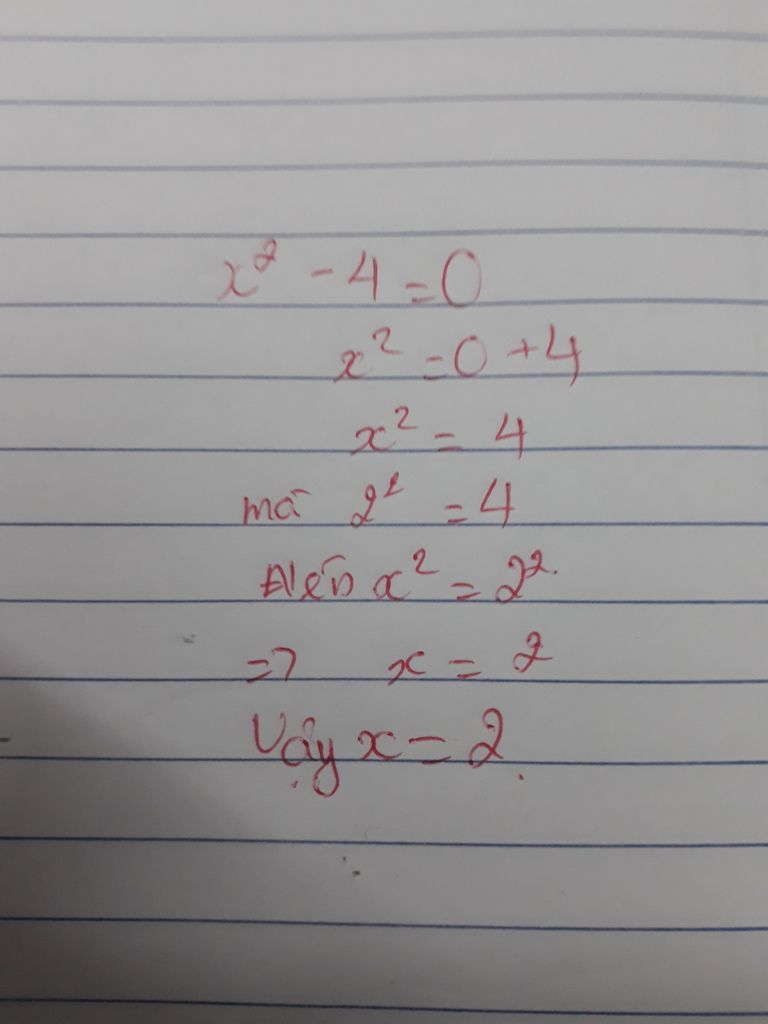 x² - 4 = 0
x² = 0 + 4
x² = 4
mà 2² = 4
Nên x² = 2².
=> x = 2
Vậy x = 2.